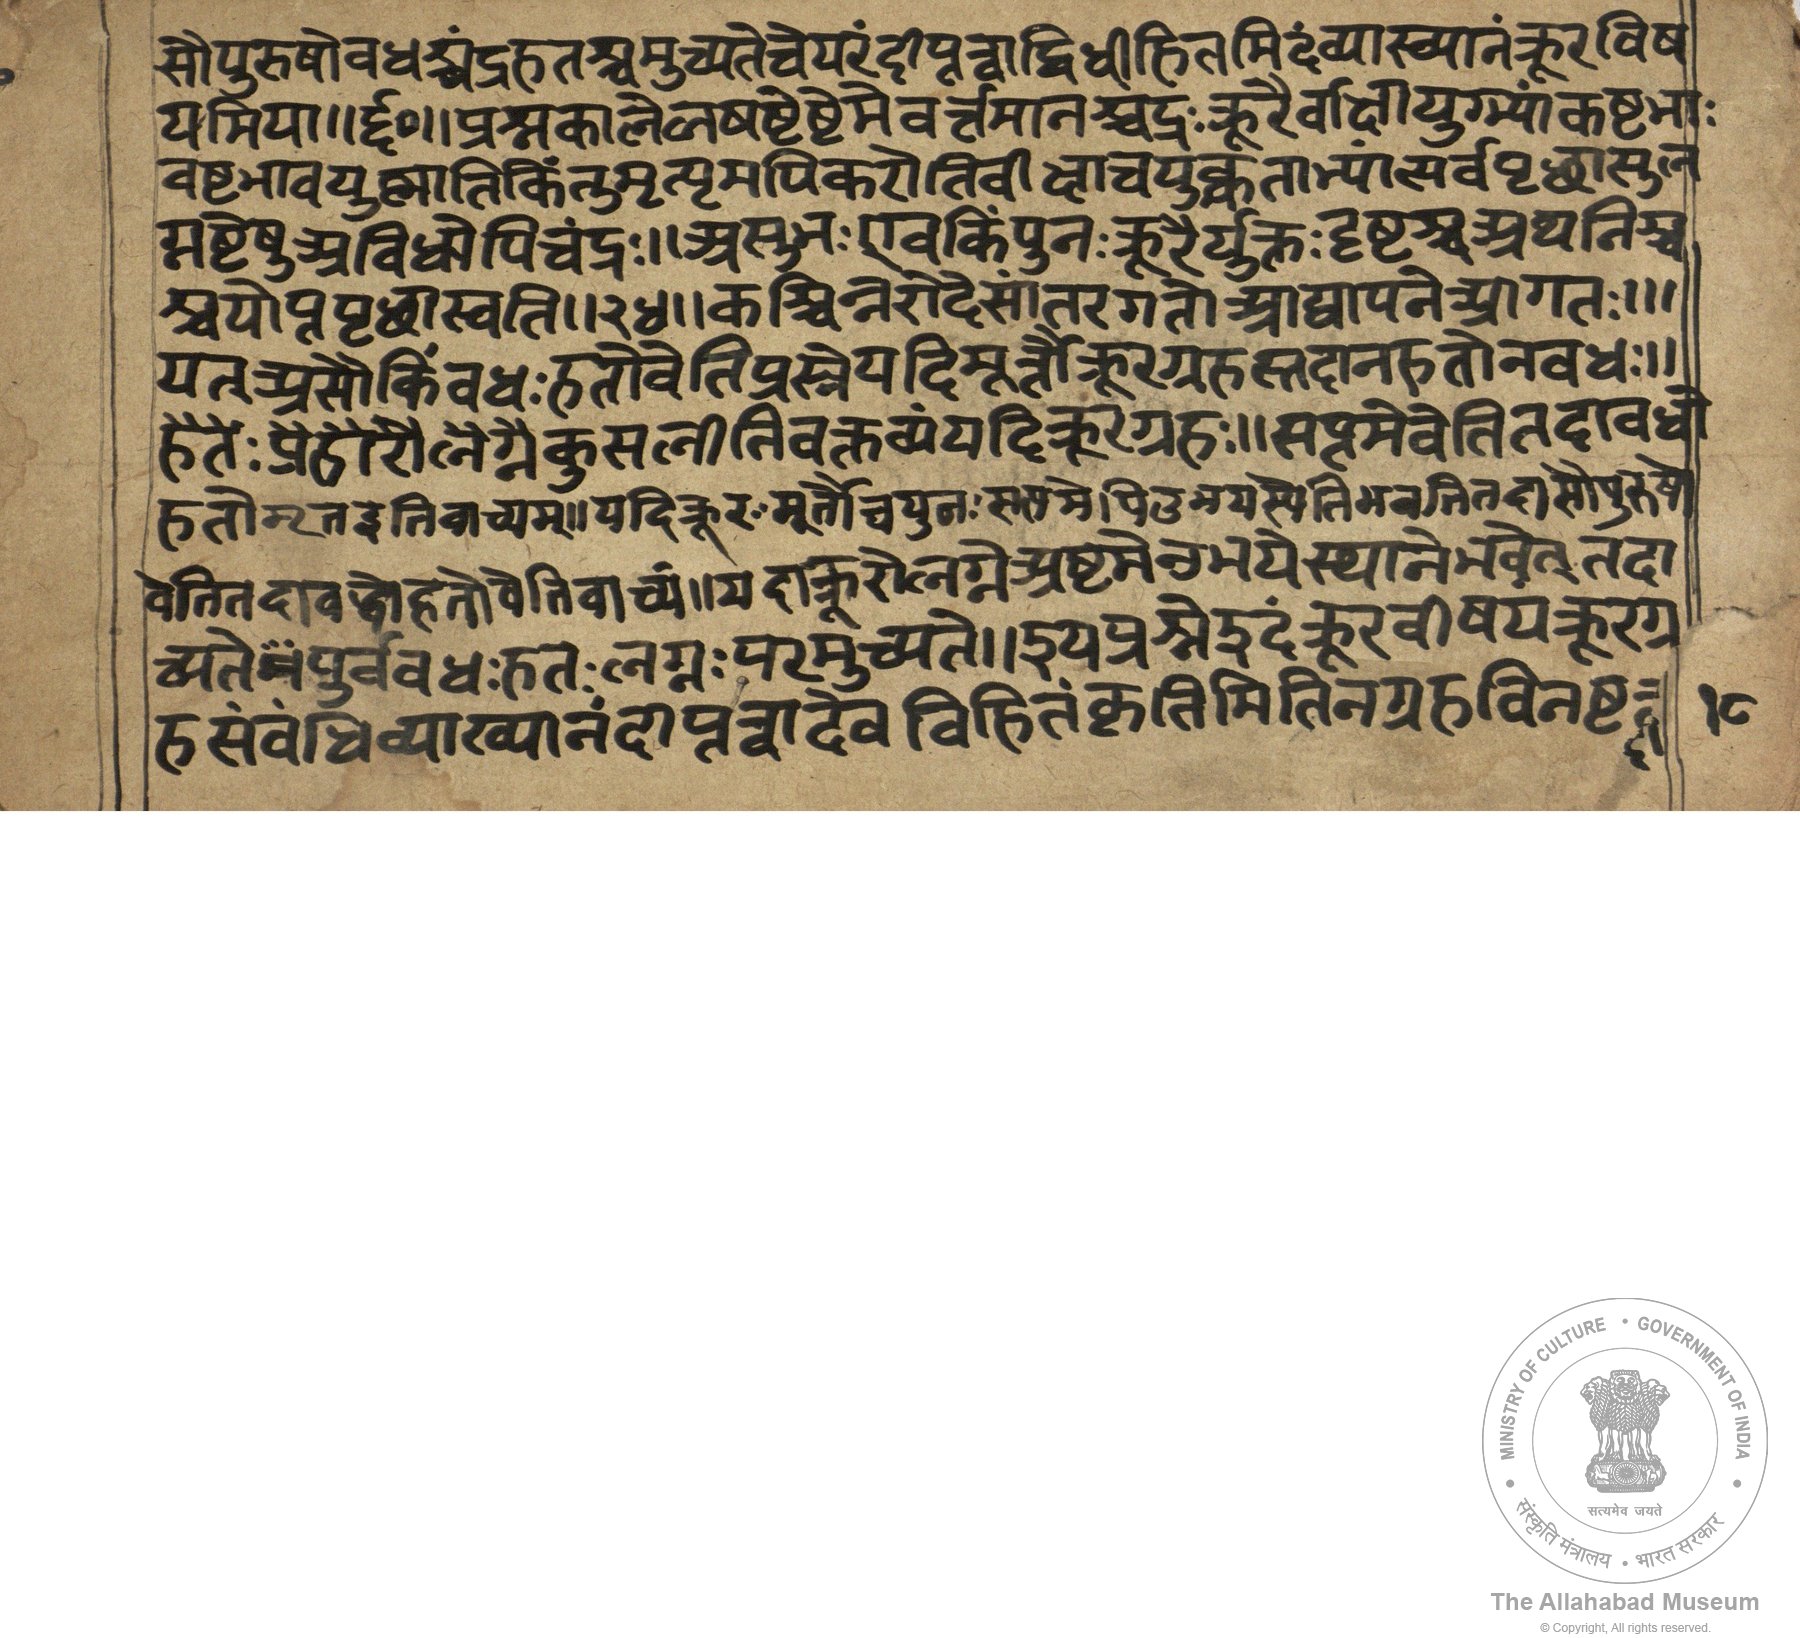 सौपुरुषोवधश्चंद्रहतश्चमुच्यतेचेयरंदीपृत्वाद्विधीहितमिदंव्याख्यानंक्रूरविष
यमिया॥र्द्द०॥प्रश्नकालेलषष्टेष्टमेवर्त्तमानश्चद्रःक्रूरैर्वाक्षीयुग्म्यांकष्टभाः
वष्टभावयुह्मातिकिंतुमृत्यृमपिकरोतिवीक्षाचयुक्ताम्यांत्सर्वपृछासुन
ग्नष्टेषुअविधोपिचंद्रः॥असुभःएवकिंपुनःक्रूरैर्युक्तःदृष्टश्चअथनिश्च
श्चयोप्नपृछास्वति॥२४॥कश्चिन्नरोदेसांतरगतोआद्यापनेआगतः॥।
यत्असौकिंवधःहतोवेतिप्रस्नेयदिमूर्त्तौक्रूरग्रहस्तदानहतोनवधः॥
कुसलीतिवक्तव्यंयदिक्रूरग्रहः॥सप्तमेवेतितदावधो
हतोम्रतइतिवाच्यम्॥यदिक्रूरःमूर्तौचयुनःसप्तमेपिउभयस्पेतिभवतितदासौपुरुषो
वेतितदावद्धोहतोवेतिवाच्यं॥यदाक्रूरोलग्नेअष्टमेउभयेस्थानेभवेत्तदा
च्यतेपुर्ववधःहतःलग्नःपरमुच्यते॥इयप्रश्नेइदंक्रूरवीषयक्रूरग्र
हसंवंधिव्याख्यानंदीप्नत्वादेवविहितंकृतिमितिनग्रहविनष्ट
१८
MINISTRY OF CULTURE • GOVERNMENT OF INDIA
सत्यमेव जयते
संस्कृति मंत्रालय • भारत सरकार
The Allahabad Museum
© Copyright, All rights reserved.